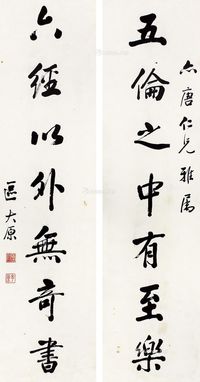 五倫之中有至樂
六經以外無奇書
亦唐仁兄雅屬
區大原